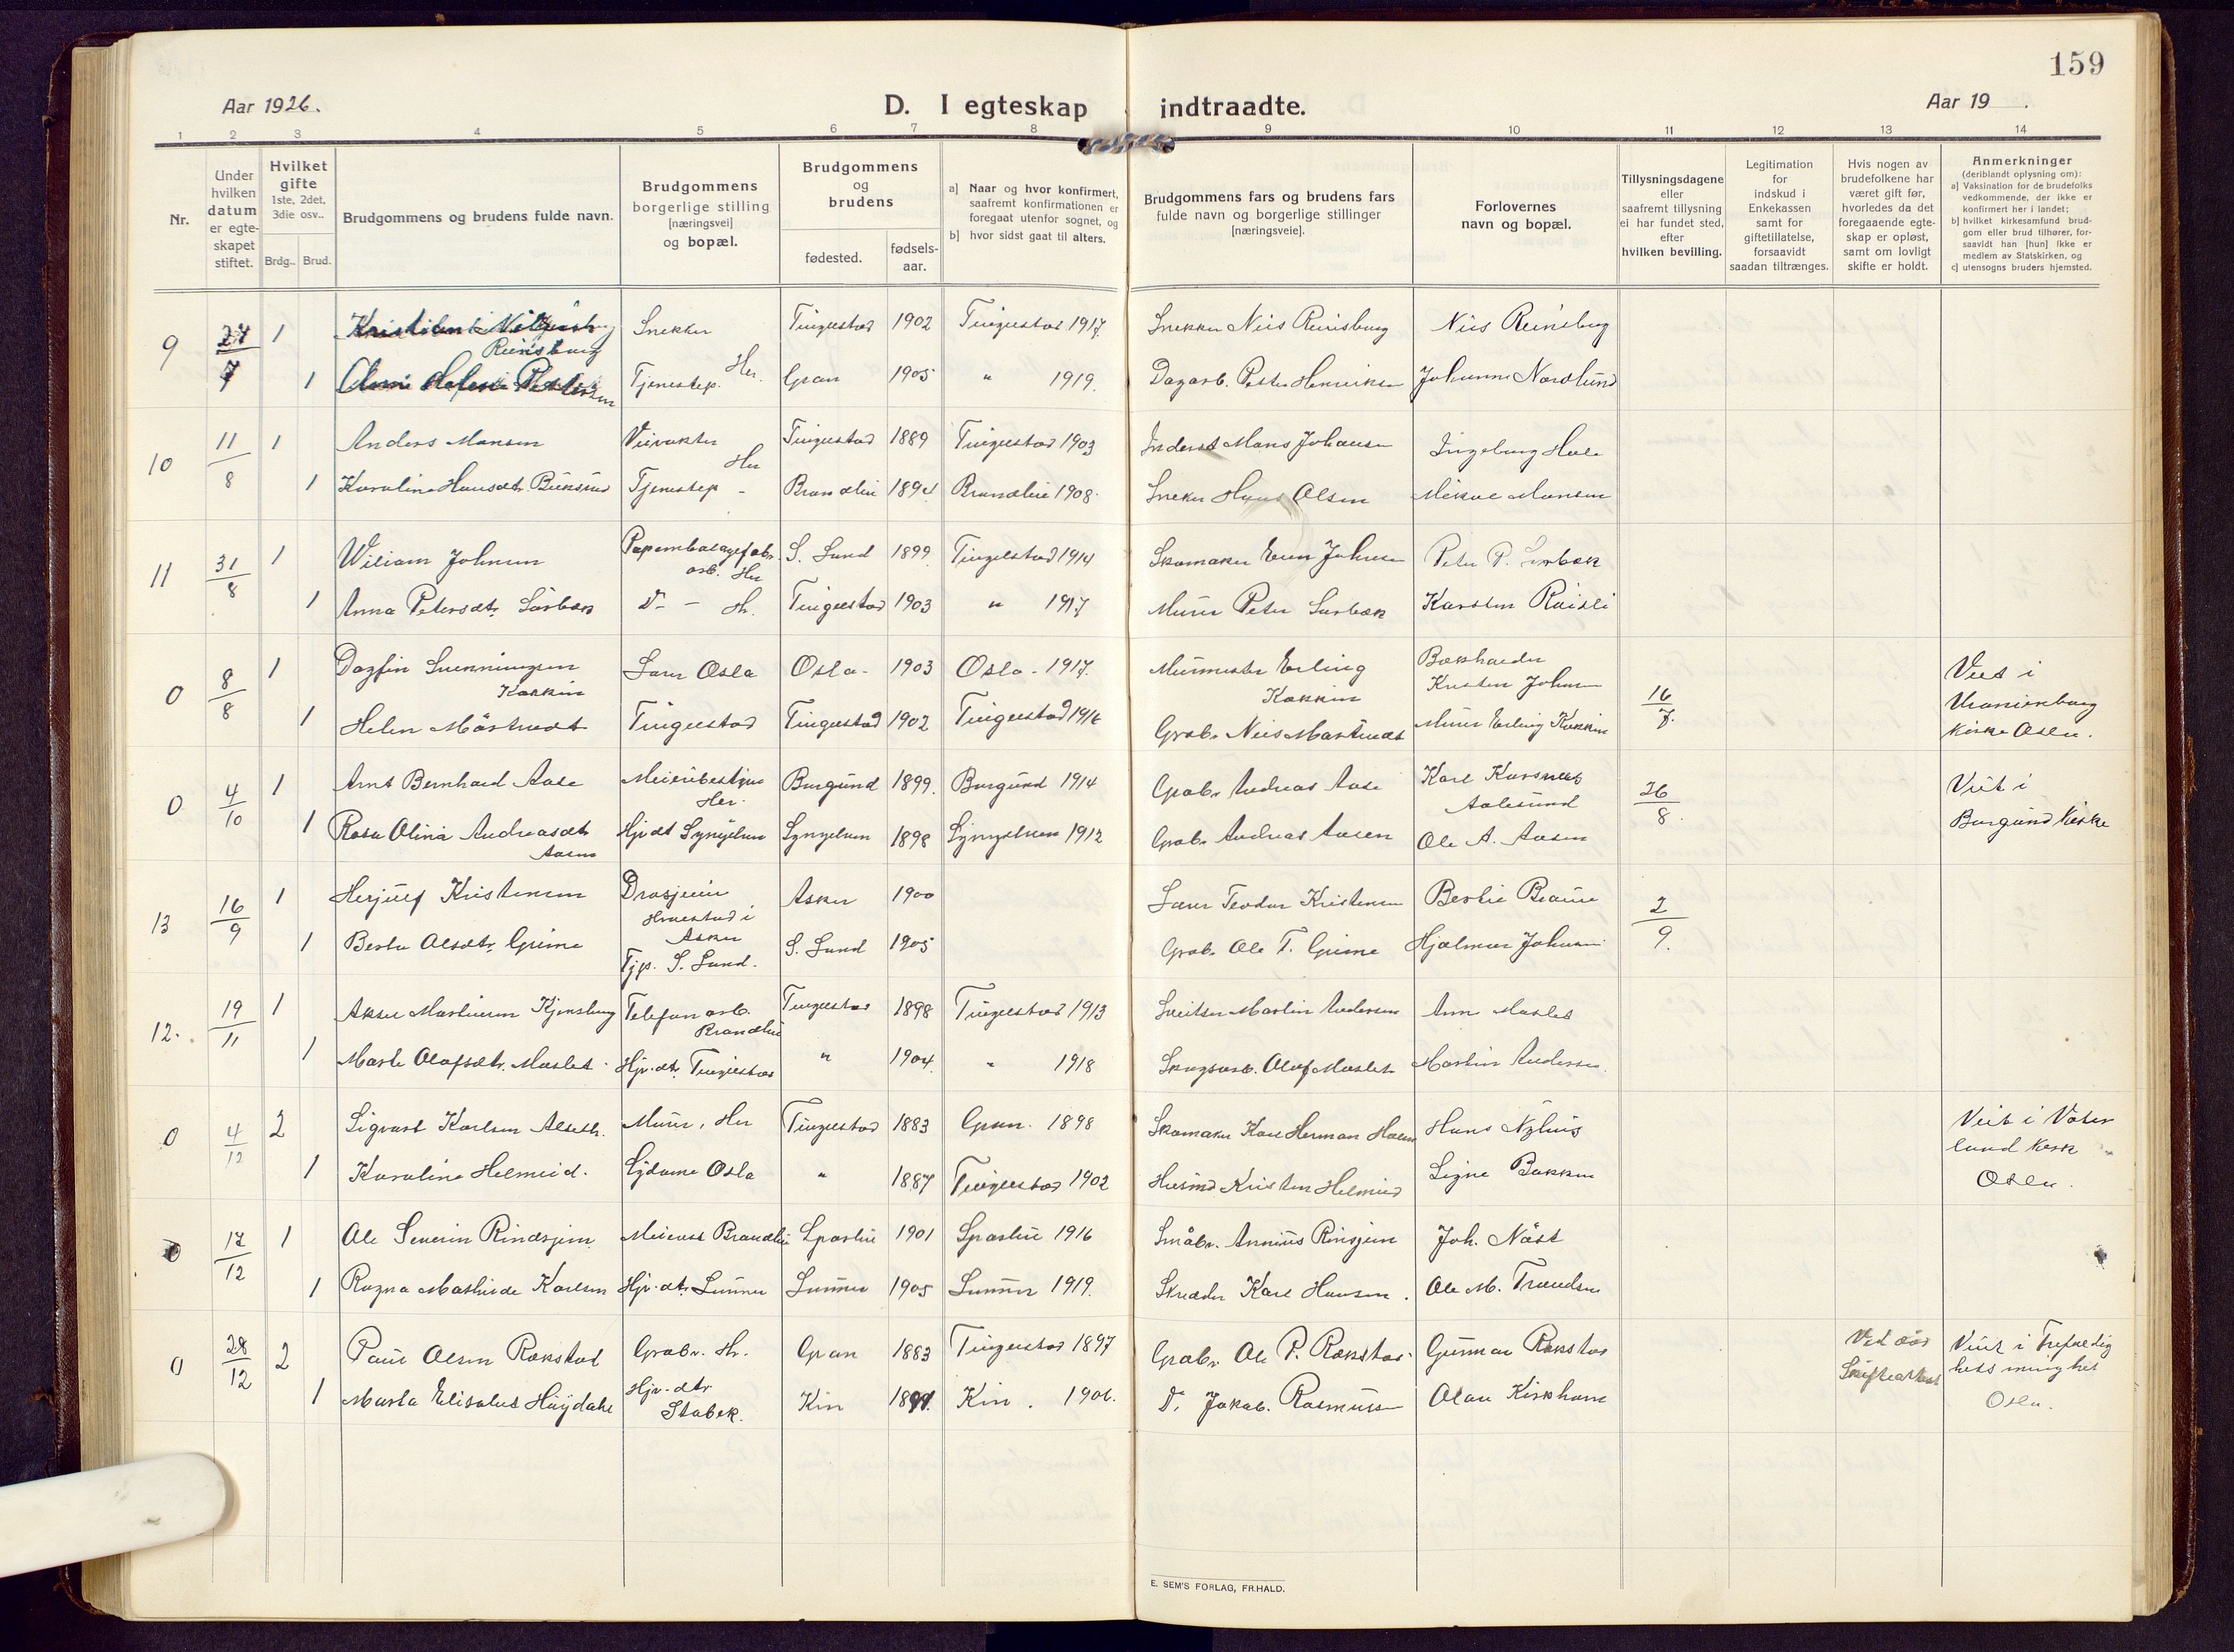 159
Aar 1926.
D. I egteskap indtraadte.
Aar 19 .
1 2 3 4 5 6 7 8 9 10 11 12 13 14
Nr.
Under hvilken datum er egteskapet stiftet.
Hvilket gifte 1ste, 2det, 3die osv..
Brdg.. Brud.
Brudgommens og brudens fulde navn.
Brudgommens borgerlige stilling [næringsvei] og bopæl.
Brudgommens og brudens
fødested. fødselsaar.
a] Naar og hvor konfirmert, saafremt konfirmationen er foregaat utenfor sognet, og
b] hvor sidst gaat til alters.
Brudgommens fars og brudens fars fulde navn og borgerlige stillinger [næringsveie].
Forlovernes navn og bopæl.
Tillysningsdagene eller saafremt tillysning ei har fundet sted, efter hvilken bevilling.
Legitimation for indskud i Enkekassen samt for giftetillatelse, forsaavidt saadan tiltrænges.
Hvis nogen av brudefolkene har været gift før, hvorledes da det foregaaende egteskap er opløst, samt om lovligt skifte er holdt.
Anmerkninger (deriblandt oplysning om):
a] Vaksination for de brudefolks vedkommende, der ikke er konfirmert her i landet;
b] hvilket kirkesamfund brudgom eller brud tilhører, forsaavidt han [hun] ikke er medlem av Statskirken, og
c] utensogns bruders hjemsted.
9 24/7 1 Reinsburg Snekker Tingelstad 1902 Tingelstad 1917. Snekker Nils Reinsburg Nils Reinsburg
1 Tjenestep. Her. Gran 1905 " 1919. Dagarb. Peder Henriksen Johannes Nordlund
10 11/8 1 Anders Monsen Veivokter Her Tingelstad 1889 Tingelstad 1903 Inderst Mons Johansen Ingeborg Hole
1 Karoline Hansdtr. Tjenestep - Brandbu 1894 Brandbu 1908. Snekker Hans Olsen Mikal Monsen
11 31/8 1 Wiliam Johnsen Papembalagefabr. arb. Her S. Land 1899. Tingelstad 1914 Skomaker Even Johnsen Peter P. Sørbæk
1 Anna Petersdtr. Sørbæk D- - Hr. Tingelstad 1903 " 1917 Murer Peter Sørbæk Karsten
0 8/8 1 Dagfin Svenningsen Kokkin Lærer Oslo Oslo - 1903 Oslo - 1917. Murmester Erling Kokkin Bokholder Kristen Johnsen 16/7. Viet i Uranienborg kirke Oslo.
1 Helen Mörstvedt Tingelstad Tingelstad 1902 Tingelstad 1916 Grdbr. Nils Mörstvedt Murer Erling Kokkin
0 4/10 1 Arnt Bernhard Aase Meieribestyrer Her. Borgund 1899. Borgund 1914 Grdbr. Andreas Aase Karl Aalesund 26/8. Viet i Borgund kirke
1 Rosa Olina Andreasdtr Aasen Hjv dt Lyngelven 1898 1912 Grdbr. Andreas Aasen Ole A. Aasen
13 16/9 1 Herjulf Kristensen Drosjeeier i Asker Asker 1900 Lærer Teodor Kristensen 2/9.
1 Berta Olsdtr. Grime Tjp. S. Land. S. Land 1905 Grdbr. Ole T. Grime Hjalmar Johnsen
12. 19/11 1 Aksel Martinsen Kjensberg Telefonarb. Brandbu Tingelstad 1898 Tingelstad 1913 Martin Andersen
1 Marte Olafsdtr. Maslet Hjv. dtr. Tingelstad " 1904. " 1918 Skogsarb. Olaf Maslet Martin Andersen.
0 4/12 2 Sigvart Karlsen Murer, Her Tingelstad 1883 Gran. 1898 Skomaker Karl Herman Hans Nyhus Viet i Vaterland kirke Oslo.
1 Karoline Helmeid. Oslo " 1887 Tingelstad 1902 Husmd Kristen Helmeid Signe Bakken
0 17/12 1 Ole Severin Rindsjem Brandbu Sparbu 1901 Sparbu 1916 Småbr. Rinsjem Joh. Näst
1 Ragna Mathilde Karlsen Hjv. dtr. Lunner Lunner 1905 Lunner 1919. Skrædder Karl Hansen. Ole M. Trondsen
0 28/12 2 Paul Olsen Rækstad Grdbr. Hr. Gran 1883 Tingelstad 1897 Grdbr. Ole P. Rækstad. Gunnar Rækstad Ved død Viet i Trefoldighets menighet Oslo.
1 Marta Elisabet Höydahl Hjv. dtr. Stabek. Kin 1891. Kin. 1906. D. Jakob Rasmussen Olav Kirkhorn
E. SEM'S FORLAG, FR.HALD.